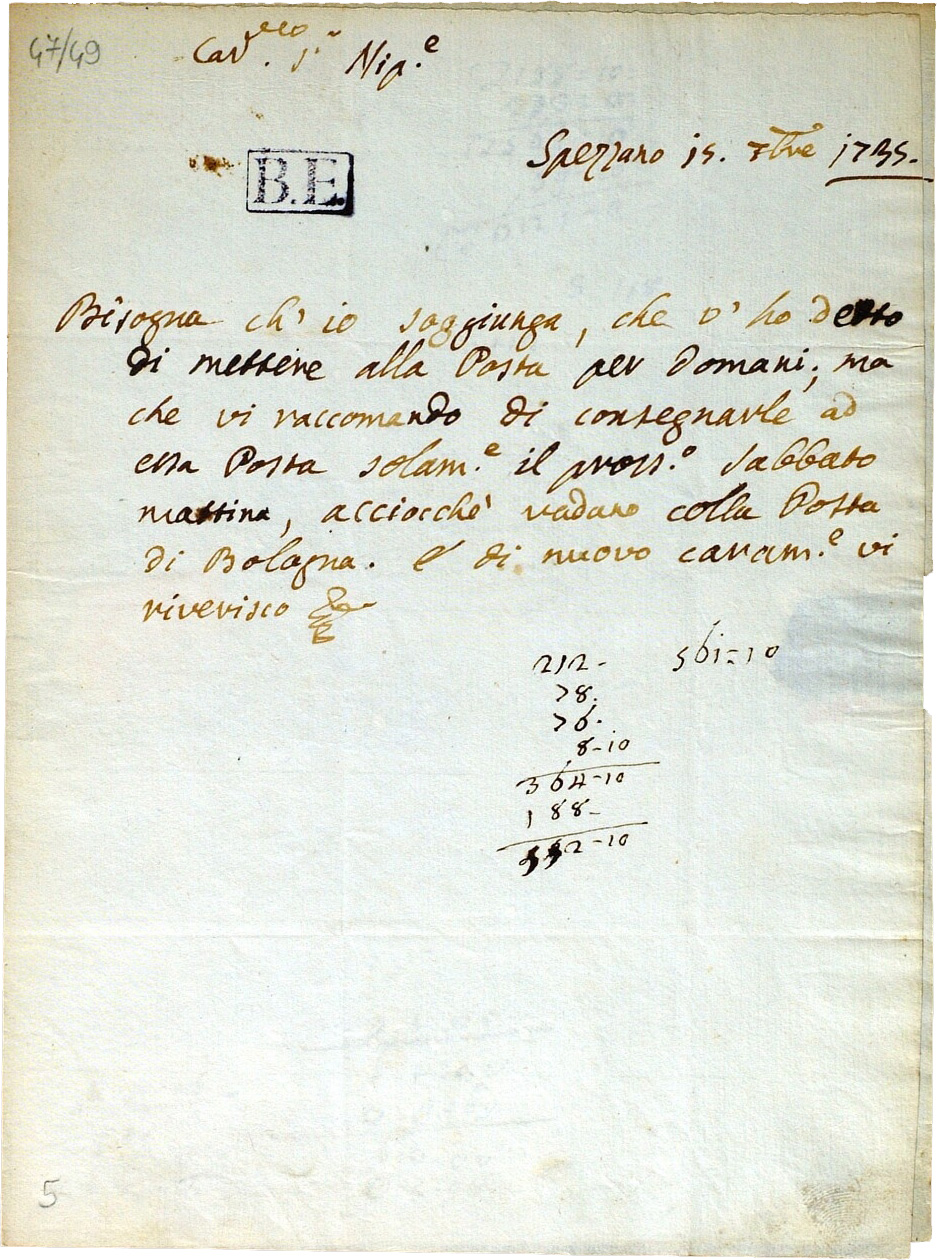 47/49
Car.mo Sr. Nip.e
B.E.
Spezzano 15. 7bre 1735.
Bisogna ch' io soggiunga, che v' ho detto
di mettere alla Posta per domani; ma
che vi raccomando di consegnarle ad
essa Posta solam.e il pross.o Sabbato
mattina, acciocchè vadano colla Posta
di Bologna. E di nuovo caram.e vi
riverisco
212- 561=10
78.
76.
8-10
364-10
188-
552-10
5